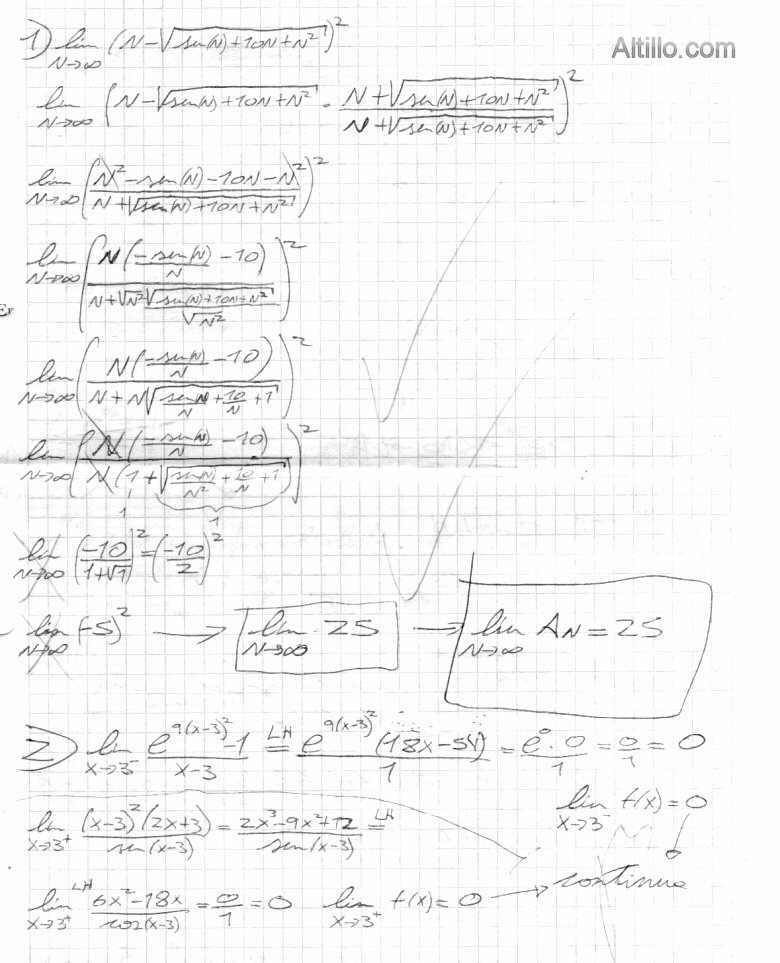 Altillo.com
1) lim N→∞ (N-√(sen(N)+10N+N²))²
lim N→∞ (N-√(sen(N)+10N+N²) · (N+√(sen(N)+10N+N²))/(N+√(sen(N)+10N+N²)))²
lim N→∞ ((N²-sen(N)-10N-N²)/(N+√(sen(N)+10N+N²)))²
lim N→∞ ((N(-sen(N)/N -10))/(N+√N² √(sen(N)+10N+N²)/√N²))²
lim N→∞ ((N(-sen(N)/N -10))/(N+N√(sen N/N + 10/N +1)))²
lim N→∞ ((N(-sen(N)/N -10))/(N(1+√(sen(N)/N² + 10/N +1))))²
1 1
lim N→∞ (-10/(1+√1))² = (-10/2)²
lim N→∞ (-5)² → lim N→∞ 25 → lim N→∞ AN = 25
2) lim x→3⁻ (e^(9(x-3)²)-1)/(x-3) =LH (e^(9(x-3)²)(18x-54))/1 = (e⁰·0)/1 = 0/1 = 0
lim x→3⁻ f(x) = 0
lim x→3⁺ ((x-3)²(2x+3))/sen(x-3) = (2x³-9x²+12)/sen(x-3) =LH
continua
lim x→3⁺ LH (6x²-18x)/cos(x-3) = 0/1 = 0 lim x→3⁺ f(x) = 0